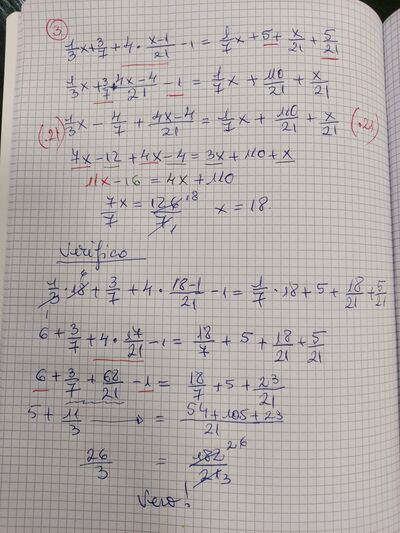 ③
1/3 x + 3/7 + 4 · (x-1)/21 - 1 = 1/7 x + 5 + x/21 + 5/21
1/3 x + 3/7 + (4x-4)/21 - 1 = 1/7 x + 110/21 + x/21
(·21) 1/3 x - 4/7 + (4x-4)/21 = 1/7 x + 110/21 + x/21 (·21)
7x - 12 + 4x - 4 = 3x + 110 + x
11x - 16 = 4x + 110
7x/7 = 126/7 18 1 x = 18.
Verifico
1/3 · 18 + 3/7 + 4 · (18-1)/21 - 1 = 1/7 · 18 + 5 + 18/21 + 5/21
1 6
6 + 3/7 + 4 · 17/21 - 1 = 18/7 + 5 + 18/21 + 5/21
6 + 3/7 + 68/21 - 1 = 18/7 + 5 + 23/21
5 + 11/3 = (54 + 105 + 23)/21
26/3 = 182/21 26 3
Vero!